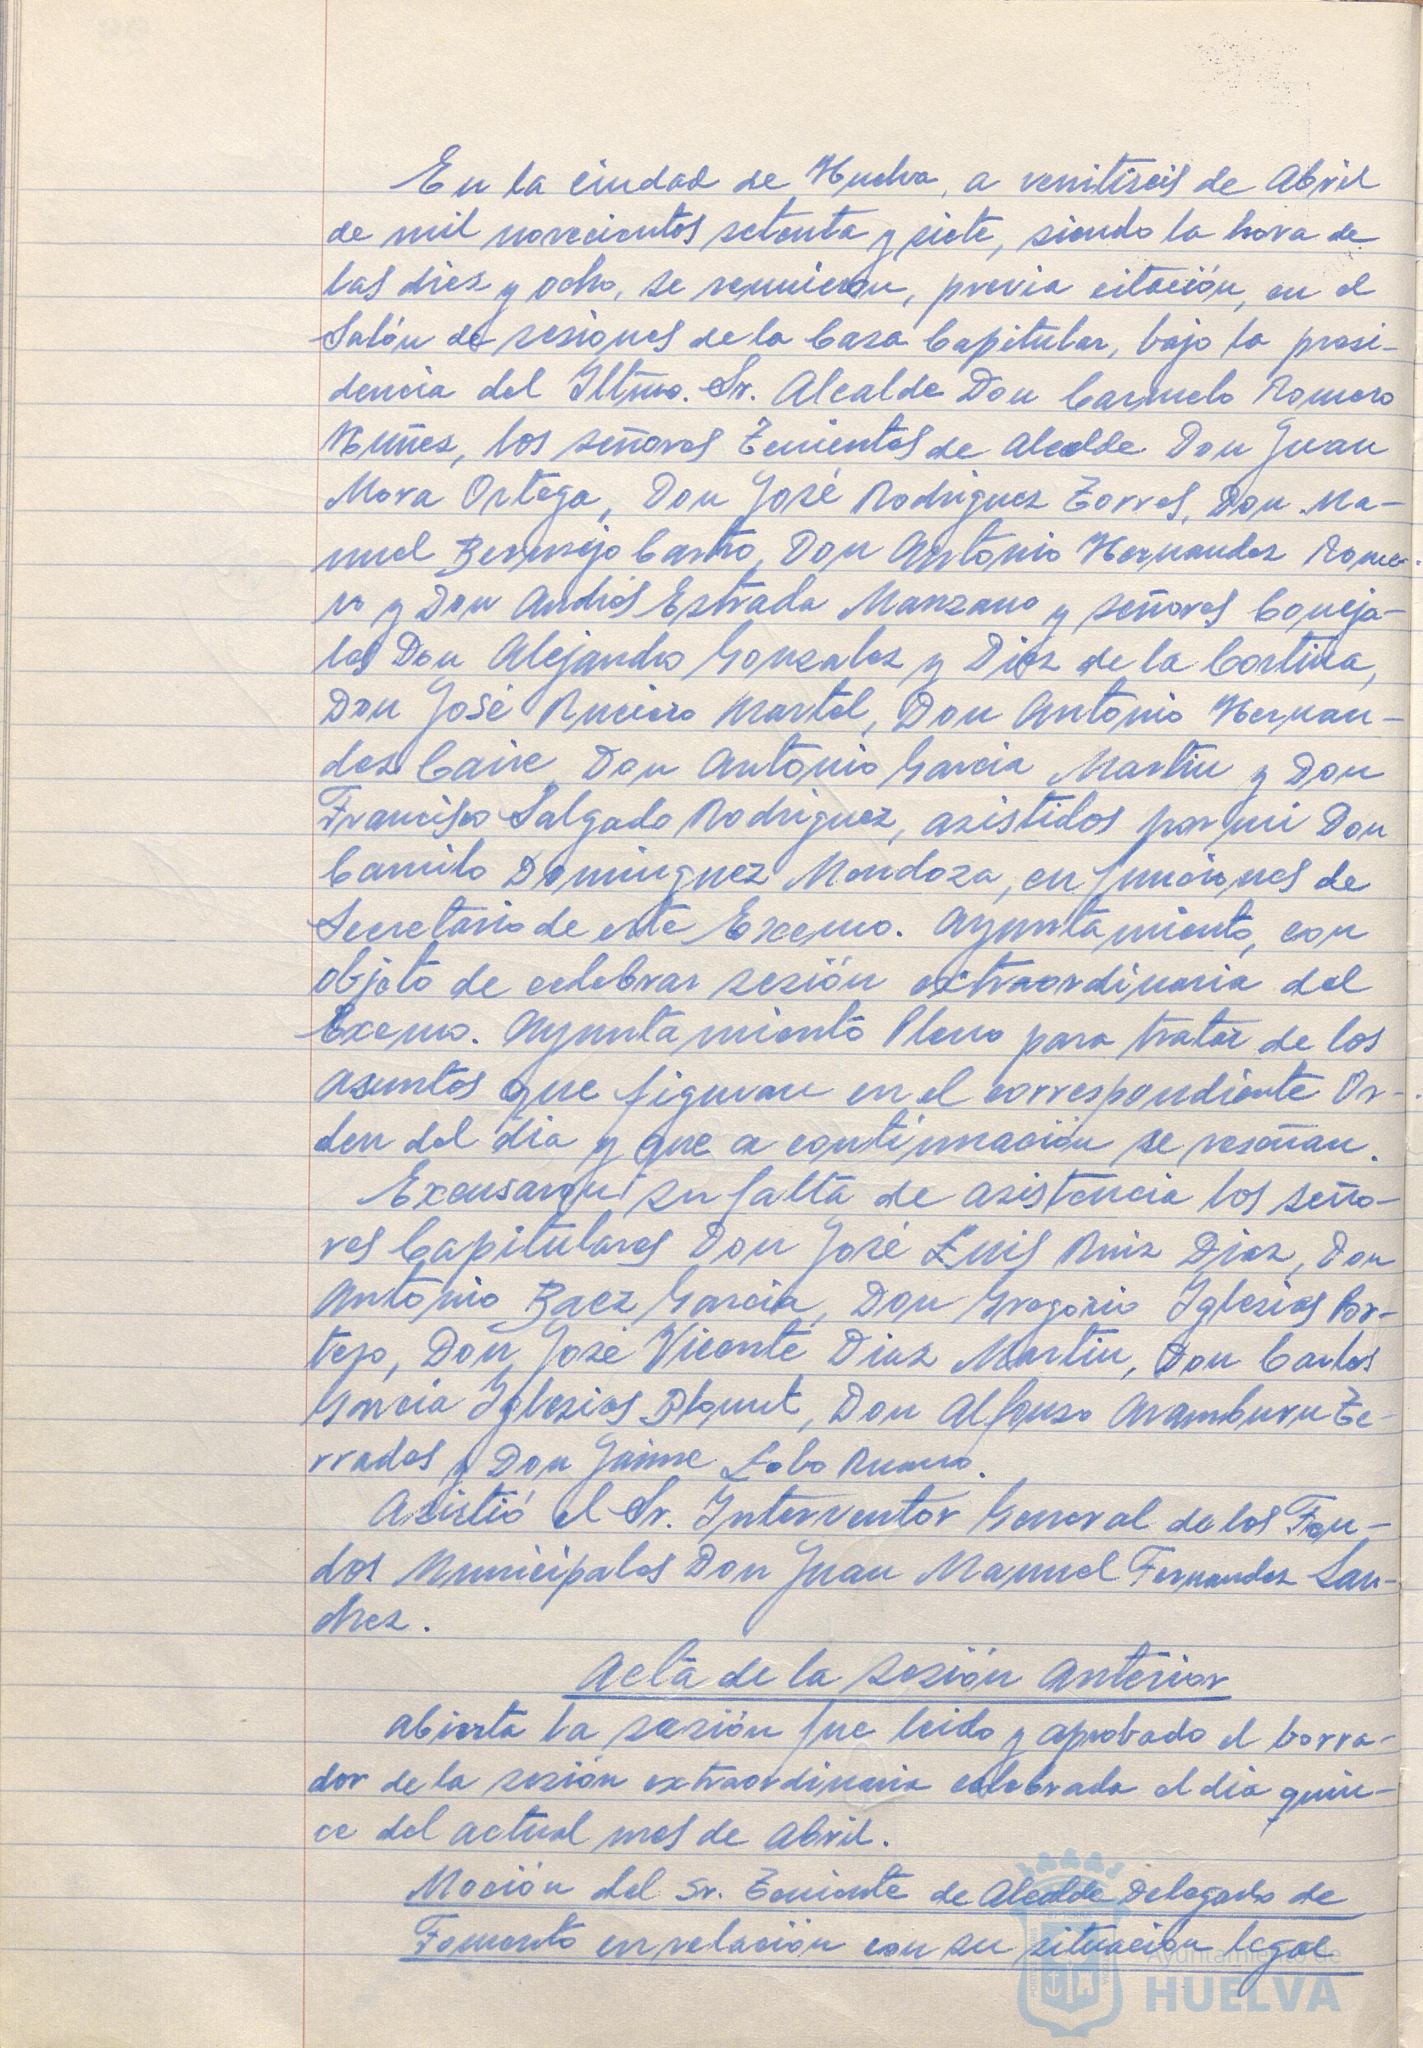 En la ciudad de Huelva, a ventiseis de Abril
de mil novecientos setenta y siete, siendo la hora de
las diez y ocho, se reunieron, previa citación, en el
Salón de sesiones de la Casa Capitular, bajo la presi-
dencia del Iltmo. Sr. Alcalde Don Carmelo Romero
Nuñez, los señores Tenientes de Alcalde Don Juan
Mora Ortega, Don José Rodriguez Torres, Don Ma-
nuel Bermejo Castro, Don Antonio Hernandez Rome-
ro y Don Andrés Estrada Manzano y señores Conceja-
les Don Alejandro Gonzalez y Diez de la Cortina,
Don José Ruciero Martel, Don Antonio Hernan-
dez Caire, Don Antonio Garcia Martin y Don
Francisco Salgado Rodriguez, asistidos por mi Don
Camilo Dominguez Mendoza, en funciones de
Secretario de este Excmo. Ayuntamiento, con
objeto de celebrar sesión extraordinaria del
Excmo. Ayuntamiento Pleno para tratar de los
asuntos que figuran en el correspondiente Or-
den del dia y que a continuación se reseñan.
Excusaron su falta de asistencia los seño-
res Capitulares Don José Luis Ruiz Diaz, Don
Antonio Baez Garcia, Don Gregorio Iglesias Por-
tejo, Don José Vicente Diaz Martin, Don Carlos
Garcia Iglesias, Don Alfonso Aramburu Te-
rrades y Don Jaime Lobo
Asistió el Sr. Interventor General de los Fon-
dos Municipales Don Juan Manuel Fernandez San-
chez.
Acta de la sesión anterior
Abierta la sesión fue leido y aprobado el borra-
dor de la sesión extraordinaria celebrada el dia quin-
ce del actual mes de Abril.
Moción del Sr. Teniente de Alcalde Delegado de
Fomento en relación con su situación legal
Ayuntamiento de
HUELVA